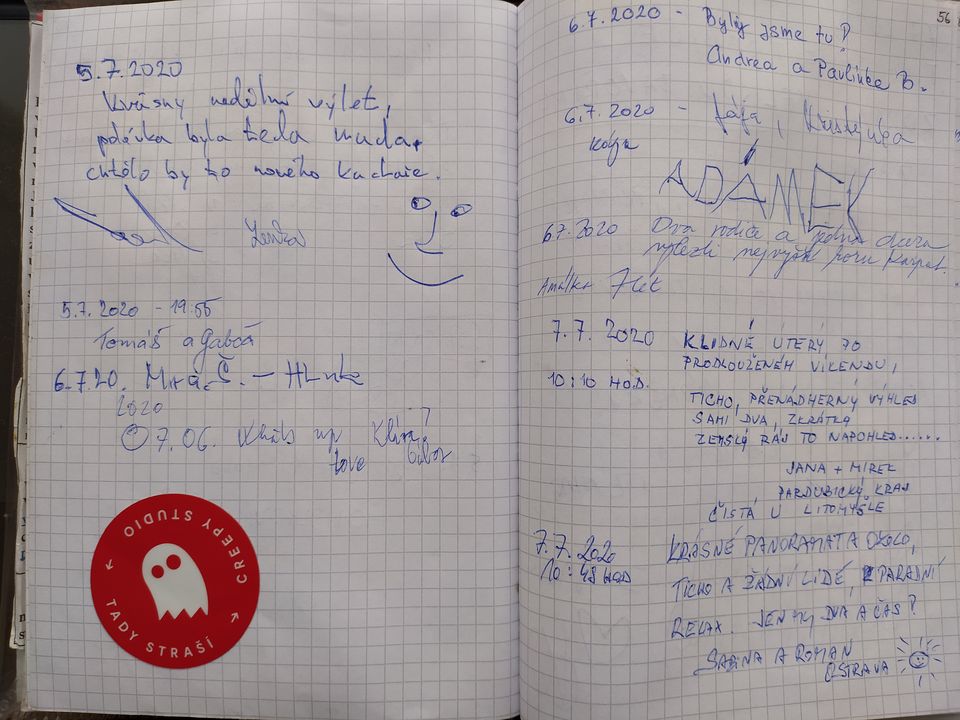 5.7.2020
Krásny nedělní výlet,
polévka byla teda nuda,
chtělo by to nového kuchaře.
Lenka
5.7.2020 - 19:55
Tomáš a Gabča
6.7.20. Mira Č. -
2020
07.06.
CREEPY STUDIO
TADY STRAŠÍ
56
6.7.2020 - Byly jsme tu!
Andrea a Pavlínka B.
6.7.2020 - Kája, Kristýnka
ADÁMEK
6.7.2020 Dva rodiče a jedna dcera
vylezli nejvyšší horu
Amálka 7 let
7.7.2020 KLIDNÉ ÚTERÝ PO
PRODLOUŽENÉM VÍKENDU,
10:10 HOD.
TICHO, PŘENÁDHERNÝ VÝHLED
SAMI DVA, ZKRÁTKA
ZEMSKÝ RÁJ TO NAPOHLED......
JANA + MIREK
PARDUBICKÝ KRAJ
ČISTÁ U LITOMYŠLE
7.7.2020 KRÁSNÉ PANORAMATA OKOLO,
10:48 HOD
TICHO A ŽÁDNÍ LIDÉ, PARÁDNÍ
RELAX. JEN MY DVA A ČAS!
SABINA A ROMAN
OSTRAVA